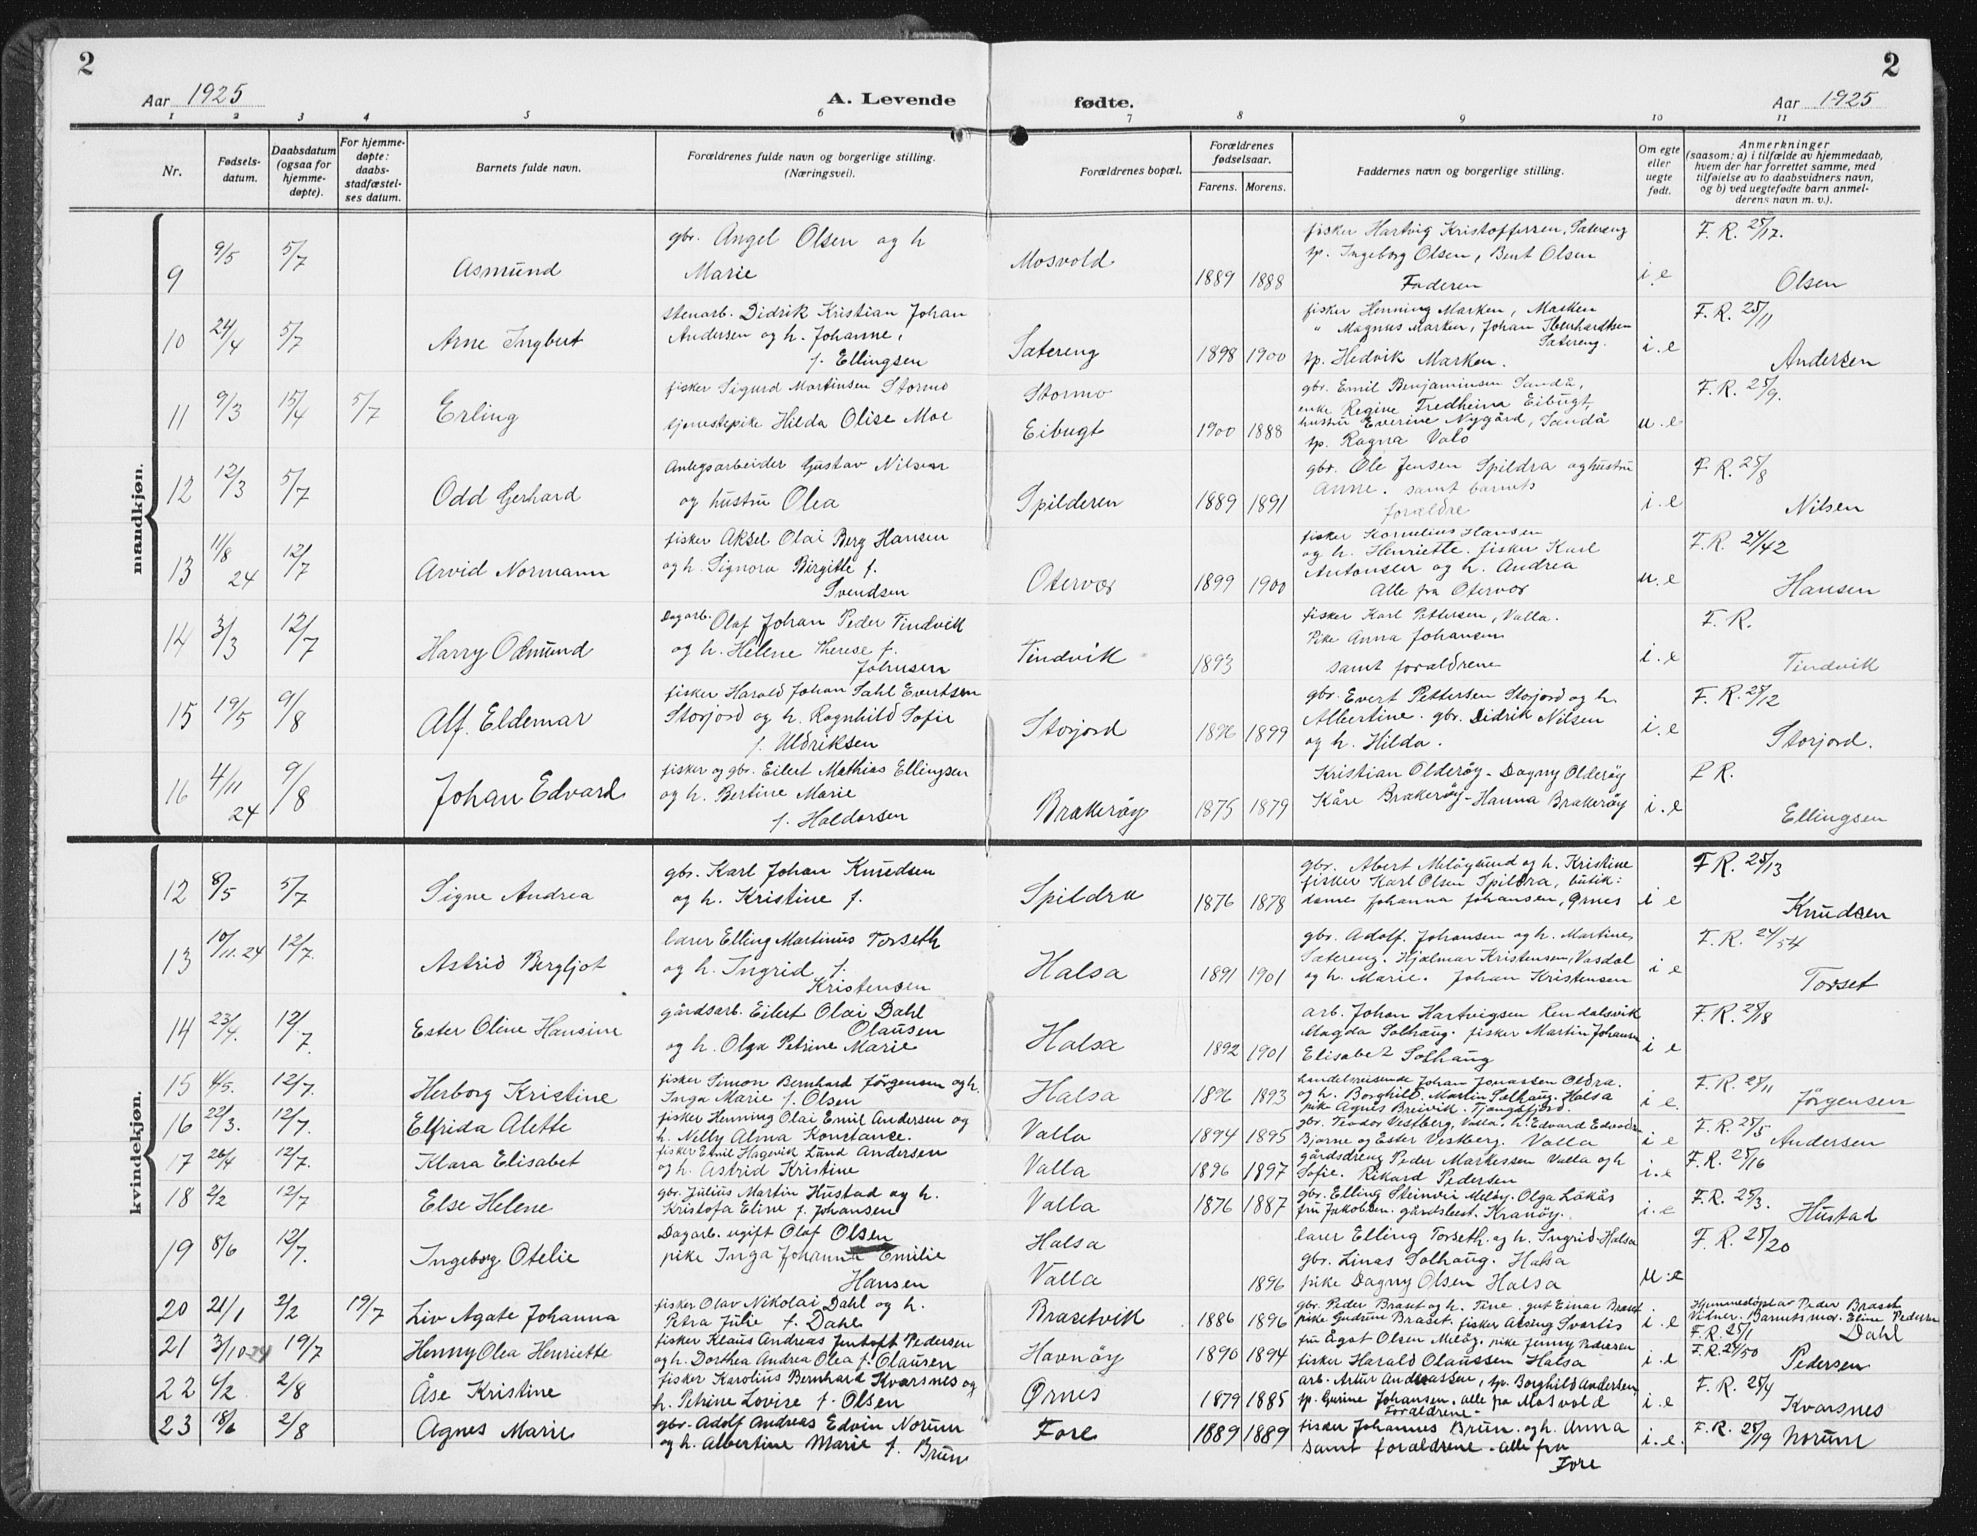 2
2
Aar 1925
A. Levende
fødte.
Aar 1925
1 2 3 4 5 6 7 8 9 10 11
Nr.
Fødsels-
datum.
Daabsdatum
(ogsaa for
hjemme-
døpte).
For hjemme-
døpte:
daabs-
stadfæstel-
ses datum.
Barnets fulde navn.
Forældrenes fulde navn og borgerlige stilling.
(Næringsvei).
Forældrenes bopæl.
Forældrenes
fødselsaar.
Farens. Morens.
Faddernes navn og borgerlige stilling.
Om egte
eller
uegte
født.
Anmerkninger
(saasom: a) i tilfælde av hjemmedaab,
hvem der har forrettet samme, med
tilføielse av to daabsvidners navn,
og b) ved uegtefødte barn anmel-
derens navn m. v.).
mandkjøn.
9 9/5 5/7 Asmund
gbr. Angel Olsen og h
Marie
Mosvold 1889 1888
fisker Hartvig Kristoffersen, Sætereng
sp. Ingeborg Olsen, Bent Olsen
Faderen
i.e F.R. 25/17. Olsen
10 24/4 5/7 Arne Ingbert
stenarb. Didrik Kristian Johan
Andersen og h. Johanne,
f. Ellingsen
Sætereng 1898 1900
fisker Henning Marken, Marken
" Magnus Marken, Johan Ibenhardtsen
Sætereng.
sp. Hedvik Marken.
i.e F.R. 25/11 Andersen
11 9/3 15/4 5/7 Erling
fisker Sigurd Martinsen Stormo
tjenestepike Hilda Olise Moe
Stormo
Eibugt 1900 1888
gbr. Emil Benjaminsen Sandå,
enke Regine Fredheim Eibugt,
hustru Everine Nygård, Sandå
sp. Ragna Valo
u.e F.R. 25/9.
12 12/3 5/7 Odd Gerhard
Anlegsarbeider Gustav Nilsen
og hustru Olea
Spilderen 1889 1891
gbr. Ole Jensen Spildra og hustru
Anne. samt barnets
forældre
i.e F.R. 25/8 Nilsen
13 11/8 24 12/7 Arvid Normann
fisker Aksel Olai Berg Hansen
og h. Signora Birgitte f.
Svendsen
Otervær 1899 1900
fisker Kornelius Hansen
og h. Henriette. fisker Karl
Antonsen og h. Andrea
Alle fra Otervær
u.e F.R. 24/42 Hansen
14 3/3 12/7 Harry Odmund
Dagarb. Olaf Johan Peder Tindvik
og h. Helene Therese f.
Johnsen
Tindvik 1893
fisker Karl Pettersen, Valla.
Pike Anna Johansen
samt forældrene
i.e F.R. Tindvik
15 19/5 9/8 Alf Eldemar
fisker Harald Johan Dahl Evertsen
Storjord og h. Ragnhild Sofie
f. Uldriksen
Storjord 1896 1899
gbr. Evert Pettersen Storjord og h.
Albertine. gbr. Didrik Nilsen
og h. Hilda.
i.e F.R. 25/12 Storjord.
16 4/11 24 9/8 Johan Edvard
fisker og gbr. Eilert Mathias Ellingsen
og h. Bertine Marie
f. Haldorsen
Brakerøy 1875 1879
Kristian Olderøy - Dagny Olderøy
Kåre Brakerøy - Hanna Brakerøy
i.e F.R. Ellingsen
kvindekjøn.
12 8/5 5/7 Signe Andrea
gbr. Karl Johan Knudsen
og h. Kristine f.
Spildra 1876 1878
gbr. Abert Meløysund og h. Kristine
fisker Karl Olsen Spildra, butik:
dame Johanna Johansen, Ørnes
i e F.R. 25/13 Knudsen
13 19/11. 24 12/7. Astrid Bergljot
lærer Elling Martinus Torseth
og h. Ingrid f.
Kristensen
Halsa 1891 1901
gbr. Adolf. Johansen og h. Martine,
Sætereng. Hjalmar Kristensen, Vasdal
og h. Marie. Johan Kristensen
i.e F.R. 24/54 Torset
14 23/4. 12/7. Ester Oline Hansine
gårdsarb. Eilert Olai Dahl
Olausen
og h. Olga Petrine Marie
Halsa 1892 1901
arb. Johan Hartvigsen Rendalsvik
Magda Solhaug. fisker Martin Johansen
Elisabet Solhaug
i e F.R. 25/18
15 4/5. 12/7. Herborg Kristine
fisker Simon Bernhard Jörgensen og h.
Inga Marie f. Olsen
Halsa 1896 1893
handelsreisende Johan Jonassen Oldra.
og h. Borghild. Martin Solhaug. Halsa
pike Agnes Breivik. Tjongsfjord.
i e. F.R. 25/11 Jörgensen
16 22/3. 12/7. Elfrida Alette
fisker Henning Olai Emil Andersen og
h. Nelly Alma Konstance.
Valla 1894 1895
gbr. Teodor Vestberg, Valla. h. Edvard Edvardsen
Bjarne og Ester Vestberg. Valla
i e F.R. 25/5 Andersen
17 26/4 12/7. Klara Elisabet
fisker Emil Hagerik Lund Andersen
og h. Astrid Kristine
Valla 1896 1897
gårdsdreng Peder Markussen Valla og h
Sofie. Rikard Pedersen
i.e F.R. 25/16
18 2/2 12/7 Else Helene
gbr. Julius Martin Hustad og h.
Kristofa Eline f. Johansen
Valla 1876 1887
gbr. Elling Steinvei Meløy. Olga Låkås
fru Jakobsen. gårdsbest. Kranøy.
i.e F.R. 25/3. Hustad
19 8/6 12/7. Ingeborg Otelie
Dagarb. ugift Olaf Olsen
pike Inga Johanna Emilie
Hansen
Halsa
Valla 1896
lærer Elling Torseth og h. Ingrid Halsa
gbr. Linas Solhaug. Halsa
pike Dagny Olsen Halsa
u.e F.R. 25/20
20 21/1 2/2 19/7 Liv Agate Johanna
fisker Olav Nikolai Dahl og h.
Petra Julie f. Dahl
Brasetvik 1886 1896
gbr. Peder Braset og h. Tine. gut Einar Braset.
pike Gudrun Braset. fisker Åsing Svartis
i e
Hjemmedøpt av Peder Braset
Vidner. Barnets mor. Eline Pedersen
F.R. 25/1 Dahl
21 3/10 24 19/7 Henny Olea Henriette
fisker Klaus Andreas Jentoft Pedersen
og h. Dorthea Andrea Olea f. Olausen
Havnøy 1890 1894
fru Ågot Olsen Meløy. pike Jenny Pedersen
fisker Harald Olaussen Halsa
i e F.R. 24/50 Pedersen
22 6/2 2/8 Åse Kristine
fisker Karolius Bernhard Kvarsnes og
h. Petrine Lovise f. Olsen
Ørnes 1879 1885
arb. Artur Andreassen, sp. Borghild Andersen
sp. Gurine Johansen. alle fra Mosvold
Forældrene.
i e F.R. 25/4 Kvarsnes
23 18/6 2/8 Agnes Marie
gbr. Adolf Andreas Edvin Norum
og h. Albertine Marie f. Brun
Fore 1889 1889
fisker Johannes Brun. og h. Anna
samt forældrene. alle fra
Fore
i.e. F.R. 25/19 Norum